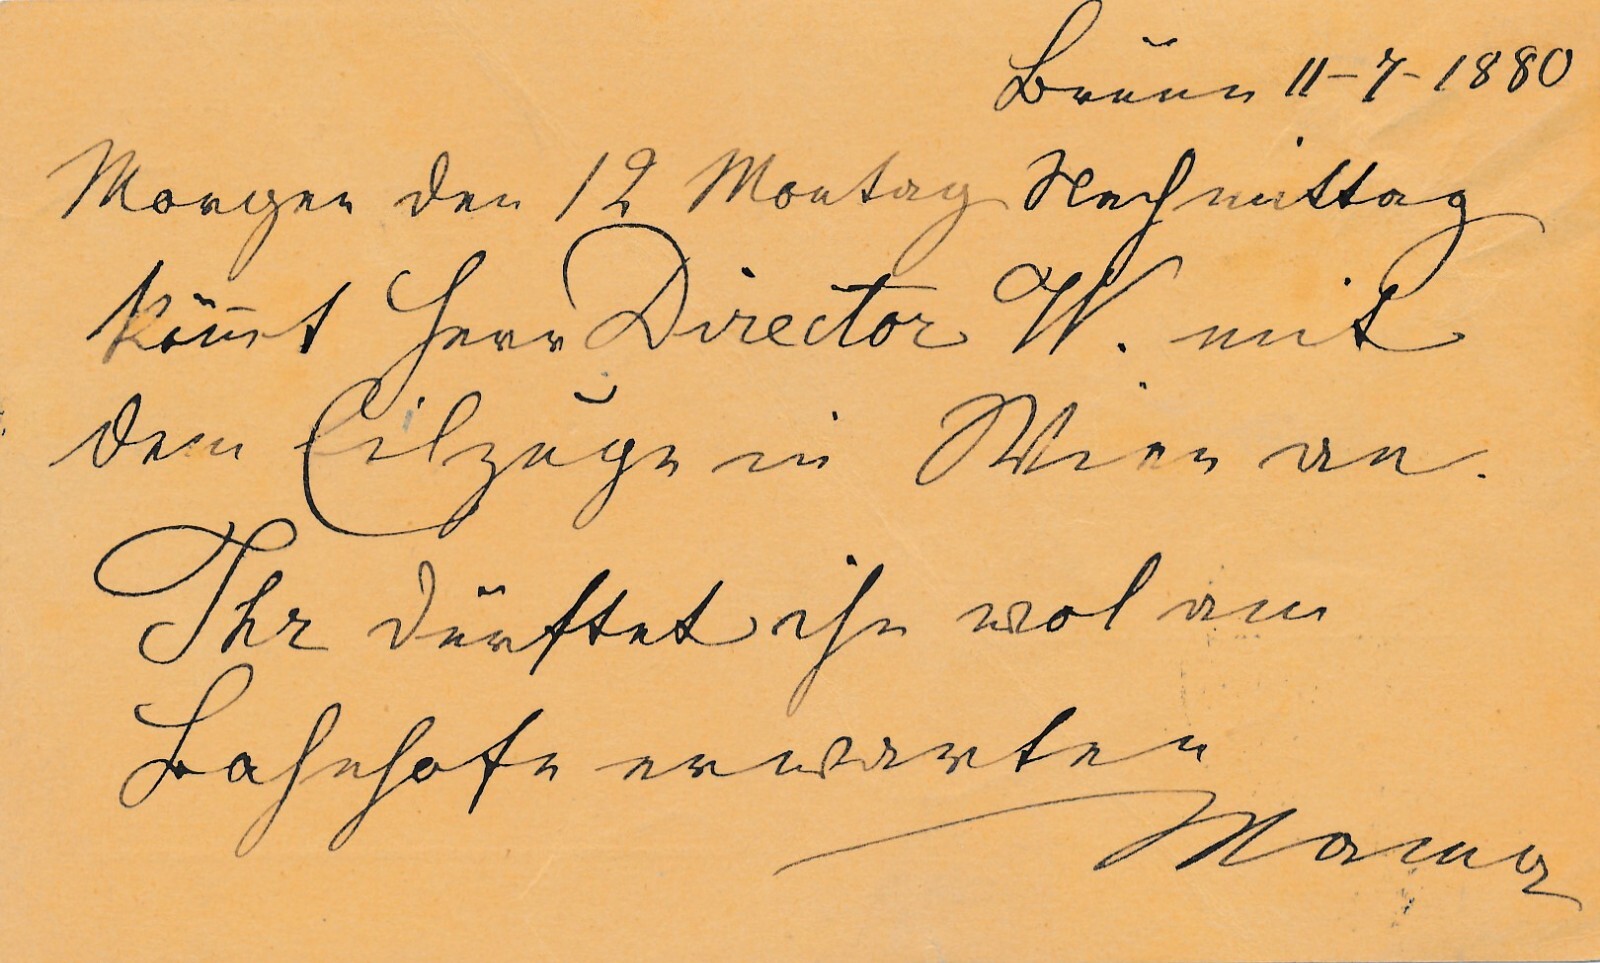 Brünn 11-7-1880
Morgen den 12 Montag Nachmittag
kömt Herr Director W. mit
dem Eilzuge in Wien an.
Ihr dürftet ihn wol am
Bahnhofe erwarten
Mama